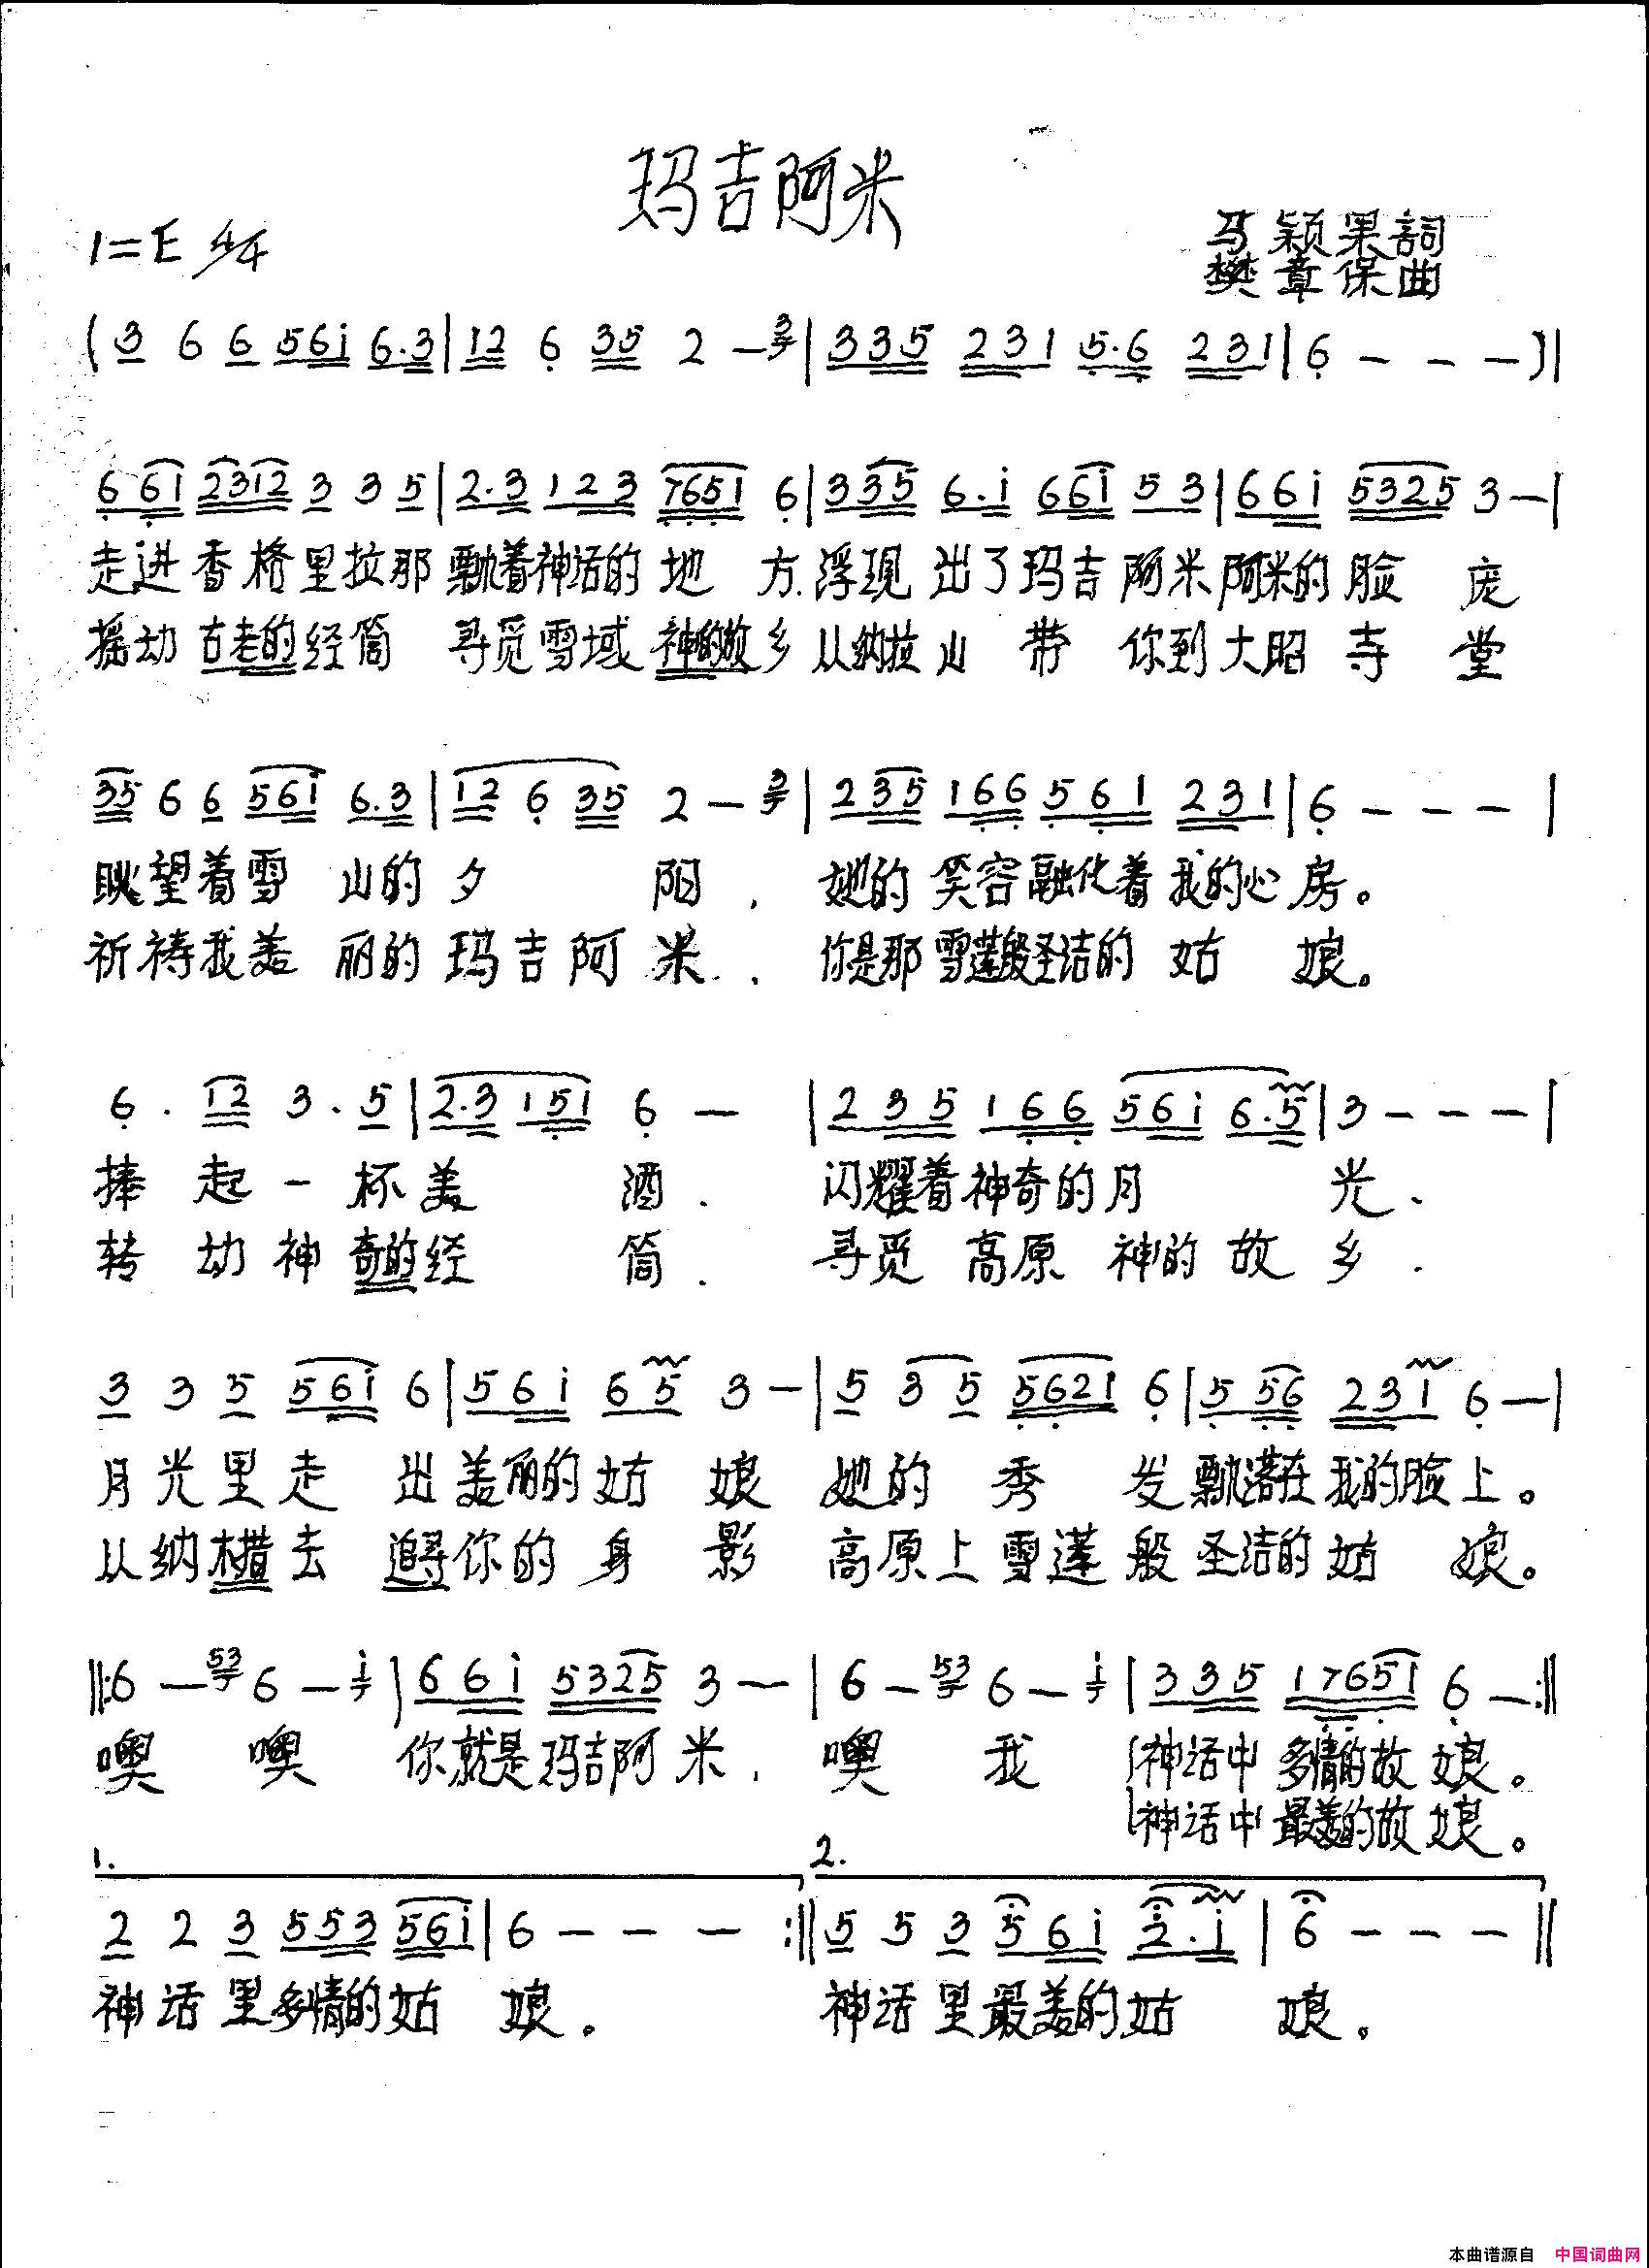 玛吉阿米
1=E 4/4
马颖果詞
樊章保曲
(3 6 6 56i 6.3|12 6 35 2 - 3|335 231 5.6 231|6 - - -)|
6 61 2312 3 3 5|2.3 123 7651 6|335 6.i 66i 5 3|66i 5325 3 -|
走进香格里拉那飘着神话的地方.浮现出了玛吉阿米阿米的脸庞
摇动古老的经筒 寻觅雪域神的故乡从纳拉山带你到大昭寺堂
35 6 6 56i 6.3|12 6 35 2 - 3|235 166 561 231|6 - - -|
眺望着雪山的夕阳.她的笑容融化着我的心房。
祈祷我美丽的玛吉阿米.你是那雪莲般圣洁的姑娘。
6. 12 3. 5|2.3 151 6 -|235 166 56i 6.5|3 - - -|
捧起一杯美酒.闪耀着神奇的月光.
转动神奇的经筒.寻觅高原神的故乡.
3 3 5 56i 6|56i 65 3 -|5 3 5 5621 6|5 56 231 6 -|
月光里走出美丽的姑娘她的秀发飘落在我的脸上。
从纳木措去追寻你的身影高原上雪莲般圣洁的姑娘。
‖:6 - 53 6 - i|66i 5325 3 -|6 - 53 6 - i|335 17651 6 -:‖
噢 噢 你就是玛吉阿米.噢 我 神话中多情的故娘。
神话中最美的故娘。
1. 2.
2 2 3 553 56i|6 - - - :‖5 5 3 56i 2.i|6 - - -‖
神话里多情的姑娘。 神话里最美的姑娘。
本曲谱源自 中国词曲网